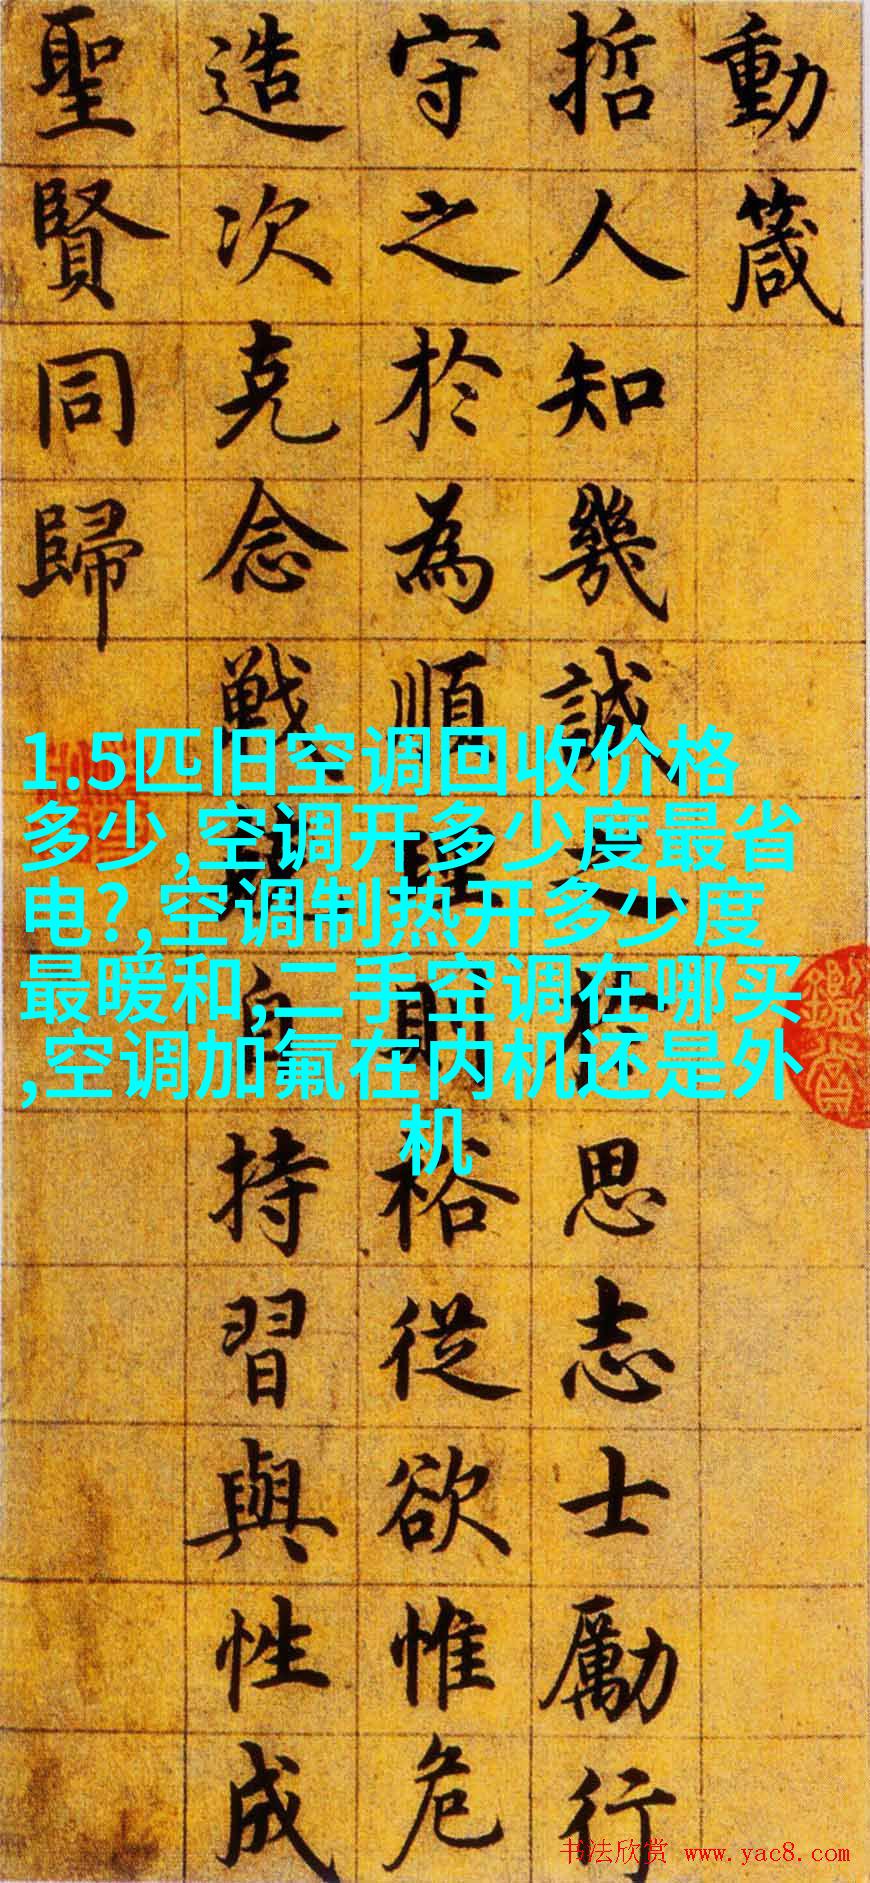 動箴
哲人知幾誠之於思志士勵行
守之於為順理則裕從欲惟危
造次克念戰兢自持習與性成
聖賢同歸
1.5匹旧空调回收价格
多少,空调开多少度最省
电?,空调制热开多少度
最暖和,二手空调在哪买
,空调加氟在内机还是外
机
书法欣赏 www.yac8.com